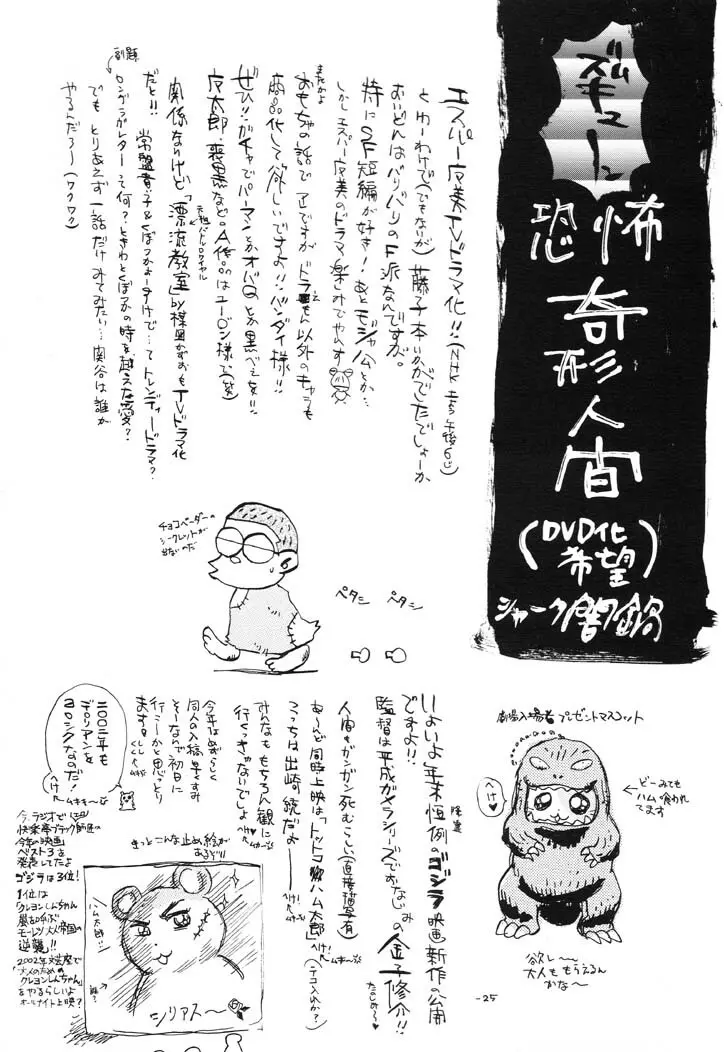 ズムキューン
恐怖
奇形人間
(DVD化希望)
シャーク闇鍋
エスパー魔美TVドラマ化!!(NHK 午後6じ)
とゆーわけで(でもないが)藤子本いかがでしたでしょーか
おいどんはバリバリのF派なんですが。
特にSF短編が好き!あとモジャ公とか…
しかしエスパー魔美のドラマ楽しみでやんす
またかよ
おもちゃの話で
商品化して欲しいですよ!!バンダイ様!!
ぜひ!!ガチャでパーマンとかオバQとか黒べえを!!
魔太郎、喪黒など。A作品はユージン様で(笑)
関係ないけど「漂流教室」by楳図かずおもTVドラマ化
元祖バトルロワイヤル
だと!! 常盤貴子&くぼづかようすけで…てトレンディードラマ?
副題
ロングラブレターって何?ときわとくぼづかの時を越えた愛?
でも とりあえず一話だけみてみたい…関谷は誰が
やるんだろー(ワクワク)
チョコベーダーの
シークレットが
出ないのだ
ペタシ
ペタシ
劇場入場者プレゼントマスコット
へけ♥
どーみても
ハム喰われてます
欲し〜
大人ももらえるん
かな〜
いよいよ年末恒例のゴジラ映画新作の公開
ですよ!!
監督は平成ガメラシリーズでおなじみの金子修介!!
たのしみ〜♥
人間もガンガン死むらしい(直接描写有)
あーんど同時上映は「トットコハム太郎」
(テコ入れか?)
こっちは出崎統だよー
へけ!
みんなももちろん観に
行くっきゃないでしょ
今年はめずらしく
同人の入稿早くすみ
そーなんで初日に
行こーかと思っとり
ます。
二〇〇二年も
デロリアンを
ヨロシクなのだ!
へけ
きっとこんな止め絵が
あるゾ!!
ハム太郎…
誰?
シリアス〜
今、ラジオで
快楽亭ブラック師匠の
今年の映画
ベスト3を
発表してたよ
ゴジラは3位!
1位は
クレヨンしんちゃん
嵐を呼ぶ
モーレツ大人帝国の
逆襲!!
2002年文芸座で
「大人のための
クレヨンしんちゃん」
をやるらしいよ
オールナイト上映?
-25